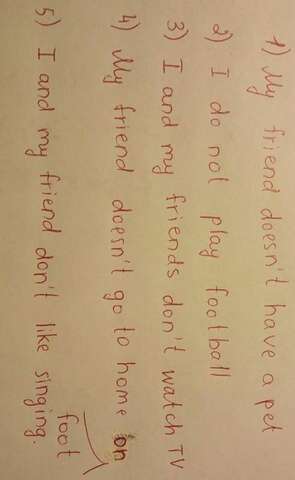 1) My friend doesn't have a pet
2) I do not play football
3) I and my friends don't watch TV
4) My friend doesn't go to home on
foot
5) I and my friend don't like singing.